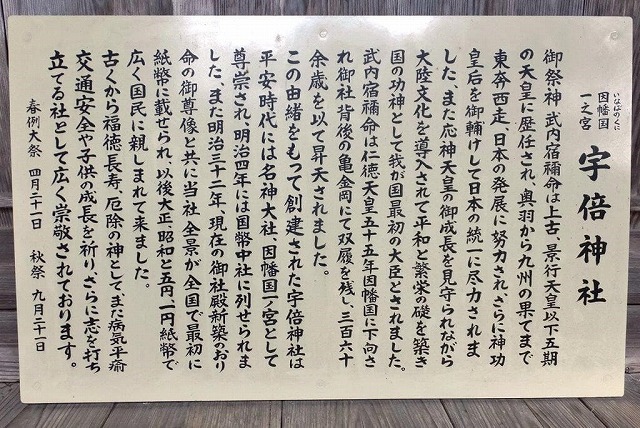 いなばのくに
因幡国
一之宮
宇倍神社
御祭神 武内宿禰命は上古、景行天皇以下五期
の天皇に歴任され、奥羽から九州の果てまで
東奔西走、日本の発展に努力され、さらに神功
皇后を御輔けして日本の統一に尽力されま
した、また応神天皇の御成長を見守られながら
大陸文化を導入されて平和と繁栄の礎を築き
国の功神として我が国最初の大臣とされました。
武内宿禰命は仁徳天皇五十五年因幡国に下向さ
れ御社背後の亀金岡にて双履を残し、三百六十
余歳を以て昇天されました。
この由緒をもって創建された宇倍神社は
平安時代には名神大社、因幡国一ノ宮として
尊崇され、明治四年には国幣中社に列せられま
した、また明治三十二年、現在の御社殿新築のおり
命の御尊像と共に当社全景が全国で最初に
紙幣に載せられ、以後大正昭和と五円、一円紙幣で
広く国民に親しまれて来ました。
古くから福徳長寿、厄除の神として、また病気平癒
交通安全や子供の成長を祈り、さらに志を打ち
立てる社として広く崇敬されております。
春例大祭 四月二十一日 秋祭 九月二十一日